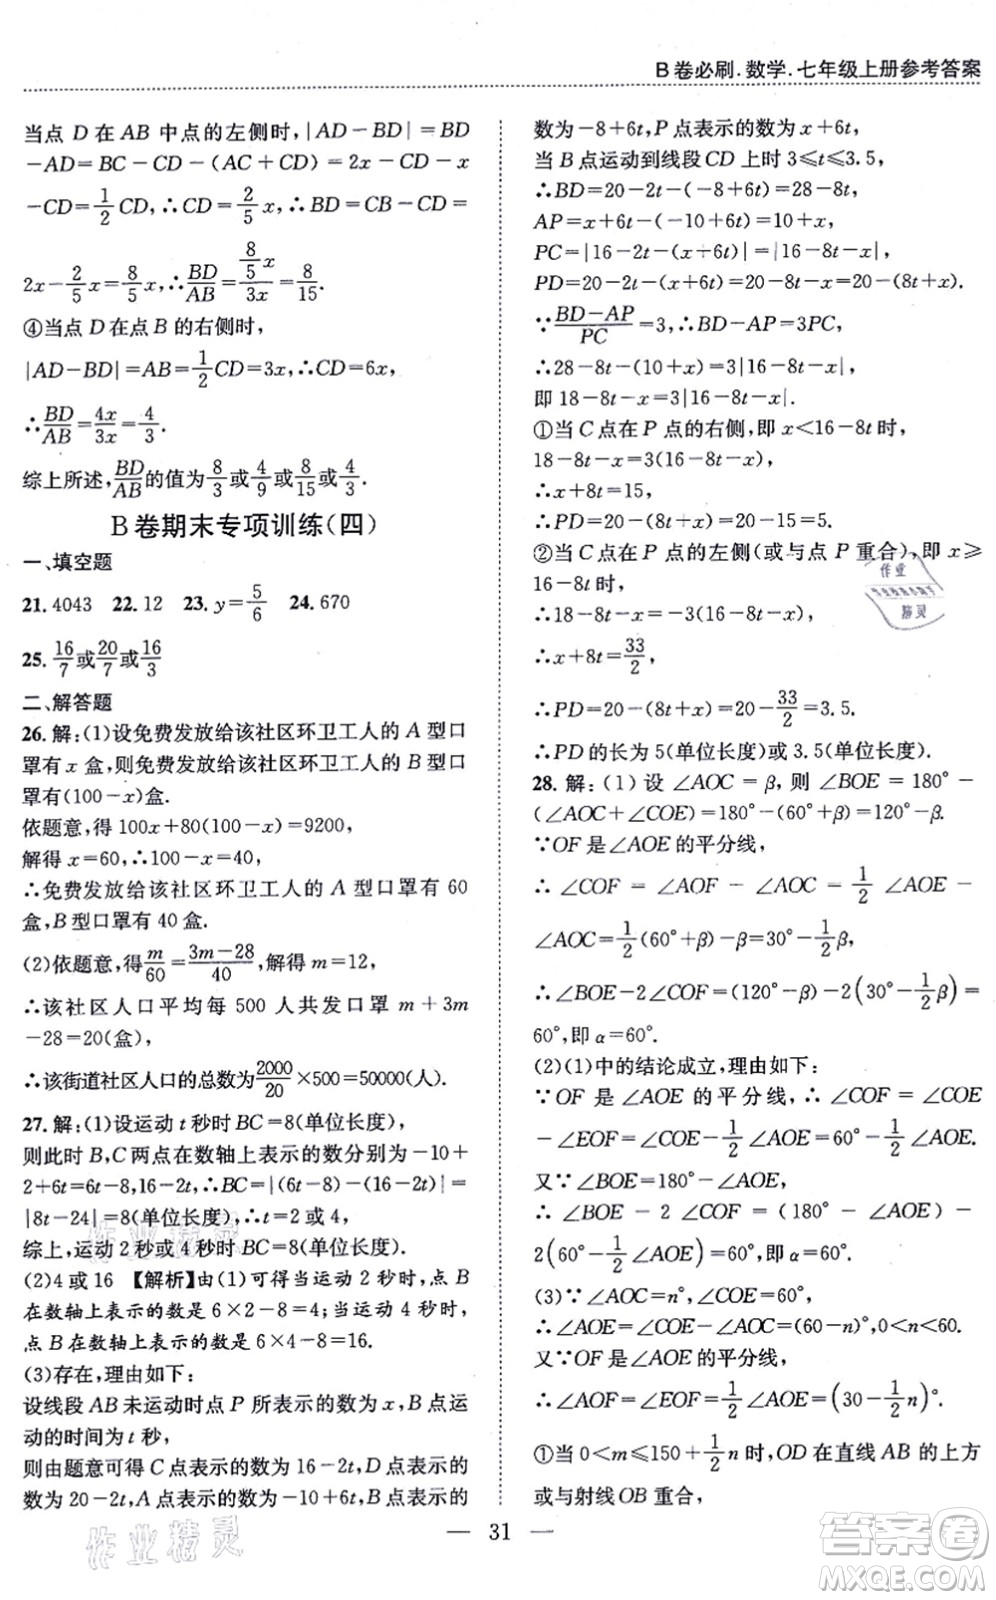 B卷必刷.数学.七年级上册参考答案
当点 D 在 AB 中点的左侧时,|AD-BD|=BD
-AD=BC-CD-(AC+CD)=2x-CD-x
-CD=1/2CD,∴CD=2/5x,∴BD=CB-CD=
2x-2/5x=8/5x,∴BD/AB=(8/5x)/3x=8/15.
④当点 D 在点 B 的右侧时,
|AD-BD|=AB=1/2CD=3x,∴CD=6x,
∴BD/AB=4x/3x=4/3.
综上所述,BD/AB的值为8/3或4/9或8/15或4/3.
B卷期末专项训练(四)
一、填空题
21.4043 22.12 23.y=5/6 24.670
25.16/7或20/7或16/3
二、解答题
26.解:(1)设免费发放给该社区环卫工人的 A 型口
罩有 x 盒,则免费发放给该社区环卫工人的 B 型口
罩有(100-x)盒.
依题意,得 100x+80(100-x)=9200,
解得 x=60,∴100-x=40,
∴免费发放给该社区环卫工人的 A 型口罩有 60
盒,B 型口罩有 40 盒.
(2)依题意,得m/60=(3m-28)/40,解得 m=12,
∴该社区人口平均每 500 人共发口罩 m+3m
-28=20(盒),
∴该街道社区人口的总数为2000/20×500=50000(人).
27.解:(1)设运动 t 秒时 BC=8(单位长度),
则此时 B,C 两点在数轴上表示的数分别为-10+
2+6t=6t-8,16-2t,∴BC=|(6t-8)-(16-2t)|=
|8t-24|=8(单位长度),∴t=2或4,
综上,运动 2 秒或 4 秒时 BC=8(单位长度).
(2)4 或 16 【解析】由(1)可得当运动 2 秒时,点 B
在数轴上表示的数是 6×2-8=4;当运动 4 秒时,
点 B 在数轴上表示的数是 6×4-8=16.
(3)存在,理由如下:
设线段 AB 未运动时点 P 所表示的数为 x,B 点运
动的时间为 t 秒,
则由题意可得 C 点表示的数为 16-2t,D 点表示的
数为 20-2t,A 点表示的数为-10+6t,B 点表示的
数为-8+6t,P 点表示的数为 x+6t,
当 B 点运动到线段 CD 上时 3≤t≤3.5,
∴BD=20-2t-(-8+6t)=28-8t,
AP=x+6t-(-10+6t)=10+x,
PC=|16-2t-(x+6t)|=|16-8t-x|,
PD=20-2t-(x+6t)=20-8t-x=20-(8t+x).
∵(BD-AP)/PC=3,∴BD-AP=3PC,
∴28-8t-(10+x)=3|16-8t-x|,
即 18-8t-x=3|16-8t-x|.
①当 C 点在 P 点的右侧,即 x<16-8t 时,
18-8t-x=3(16-8t-x),
∴x+8t=15,
∴PD=20-(8t+x)=20-15=5.
②当 C 点在 P 点的左侧(或与点 P 重合),即 x≥
16-8t 时,
∴18-8t-x=-3(16-8t-x),
∴x+8t=33/2,
∴PD=20-(8t+x)=20-33/2=3.5.
∴PD 的长为 5(单位长度)或 3.5(单位长度).
28.解:(1)设 ∠AOC=β,则 ∠BOE=180°-
(∠AOC+∠COE)=180°-(60°+β)=120°-β.
∵OF 是∠AOE 的平分线,
∴∠COF=∠AOF-∠AOC=1/2∠AOE-
∠AOC=1/2(60°+β)-β=30°-1/2β,
∴∠BOE-2∠COF=(120°-β)-2(30°-1/2β)=
60°,即 α=60°.
(2)(1)中的结论成立,理由如下:
∵OF 是 ∠AOE 的平分线,∴∠COF=∠COE
-∠EOF=∠COE-1/2∠AOE=60°-1/2∠AOE.
又∵∠BOE=180°-∠AOE,
∴∠BOE-2∠COF=(180°-∠AOE)-
2(60°-1/2∠AOE)=60°,即 α=60°.
(3)∵∠AOC=n°,∠COE=60°,
∴∠AOE=∠COE-∠AOC=(60-n)°,0<n<60.
又∵OF 是∠AOE 的平分线,
∴∠AOF=∠EOF=1/2∠AOE=(30-1/2n)°.
①当 0<m≤150+1/2n 时,OD 在直线 AB 的上方
或与射线 OB 重合,
31
作业精灵
作业精灵
答案圈
MXQE.COM